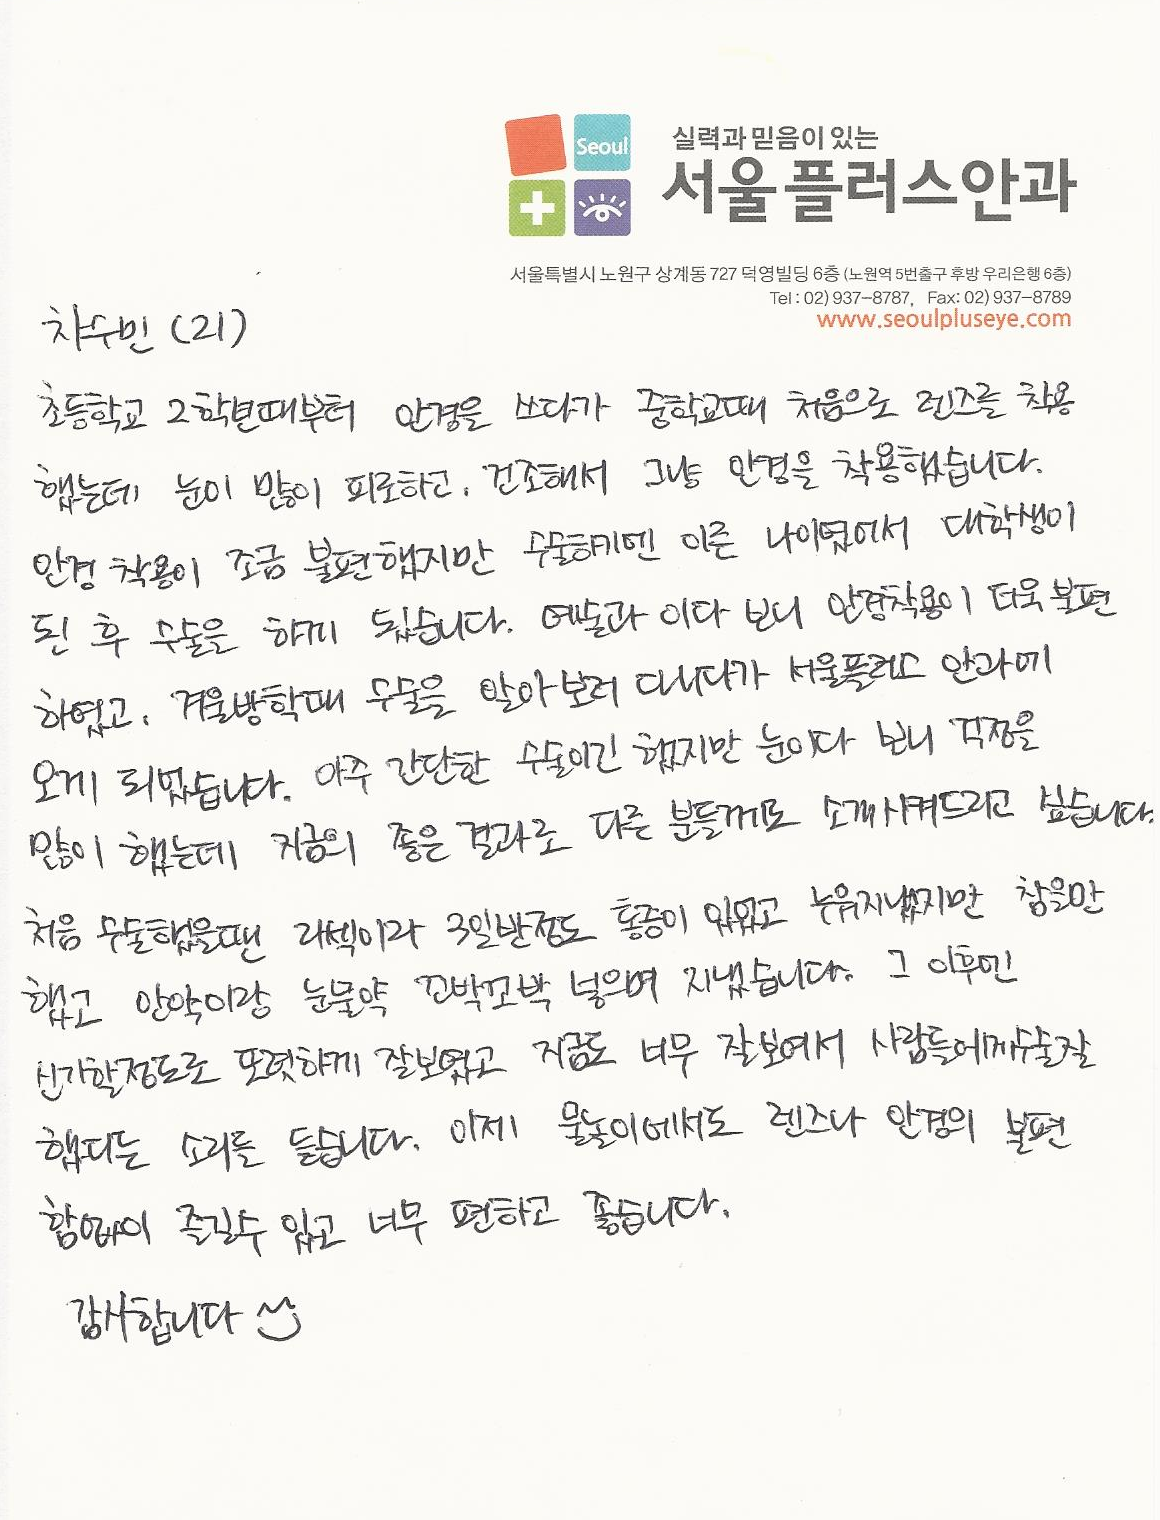 Seoul
실력과 믿음이 있는
서울플러스안과
서울특별시 노원구 상계동 727 덕영빌딩 6층 (노원역 5번출구 후방 우리은행 6층)
Tel : 02) 937-8787, Fax: 02) 937-8789
www.seoulpluseye.com
차수민 (21)
초등학교 2학년때부터 안경을 쓰다가 중학교때 처음으로 렌즈를 착용
했는데 눈이 많이 피로하고, 건조해서 그냥 안경을 착용했습니다.
안경 착용이 조금 불편했지만 수술하기엔 이른 나이였어서 대학생이
된 후 수술을 하게 됐습니다. 예술과 이다 보니 안경착용이 더욱 불편
하였고, 겨울방학때 수술을 알아보러 다니다가 서울플러스 안과에
오게 되었습니다. 아주 간단한 수술이긴 했지만 눈이다 보니 걱정을
많이 했는데 지금의 좋은 결과로 다른 분들께도 소개시켜드리고 싶습니다.
처음 수술했을땐 라섹이라 3일반정도 통증이 있었고 누워지냈지만 참을만
했고 안약이랑 눈물약 꼬박꼬박 넣으며 지냈습니다. 그 이후엔
신기할정도로 또렷하게 잘보였고 지금도 너무 잘보여서 사람들에게수술잘
했다는 소리를 듣습니다. 이제 물놀이에서도 렌즈나 안경의 불편
함없이 즐길수 있고 너무 편하고 좋습니다.
감사합니다